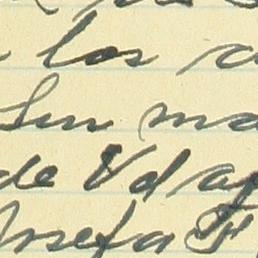 los
Sin ma
de Vd af
Josefa F